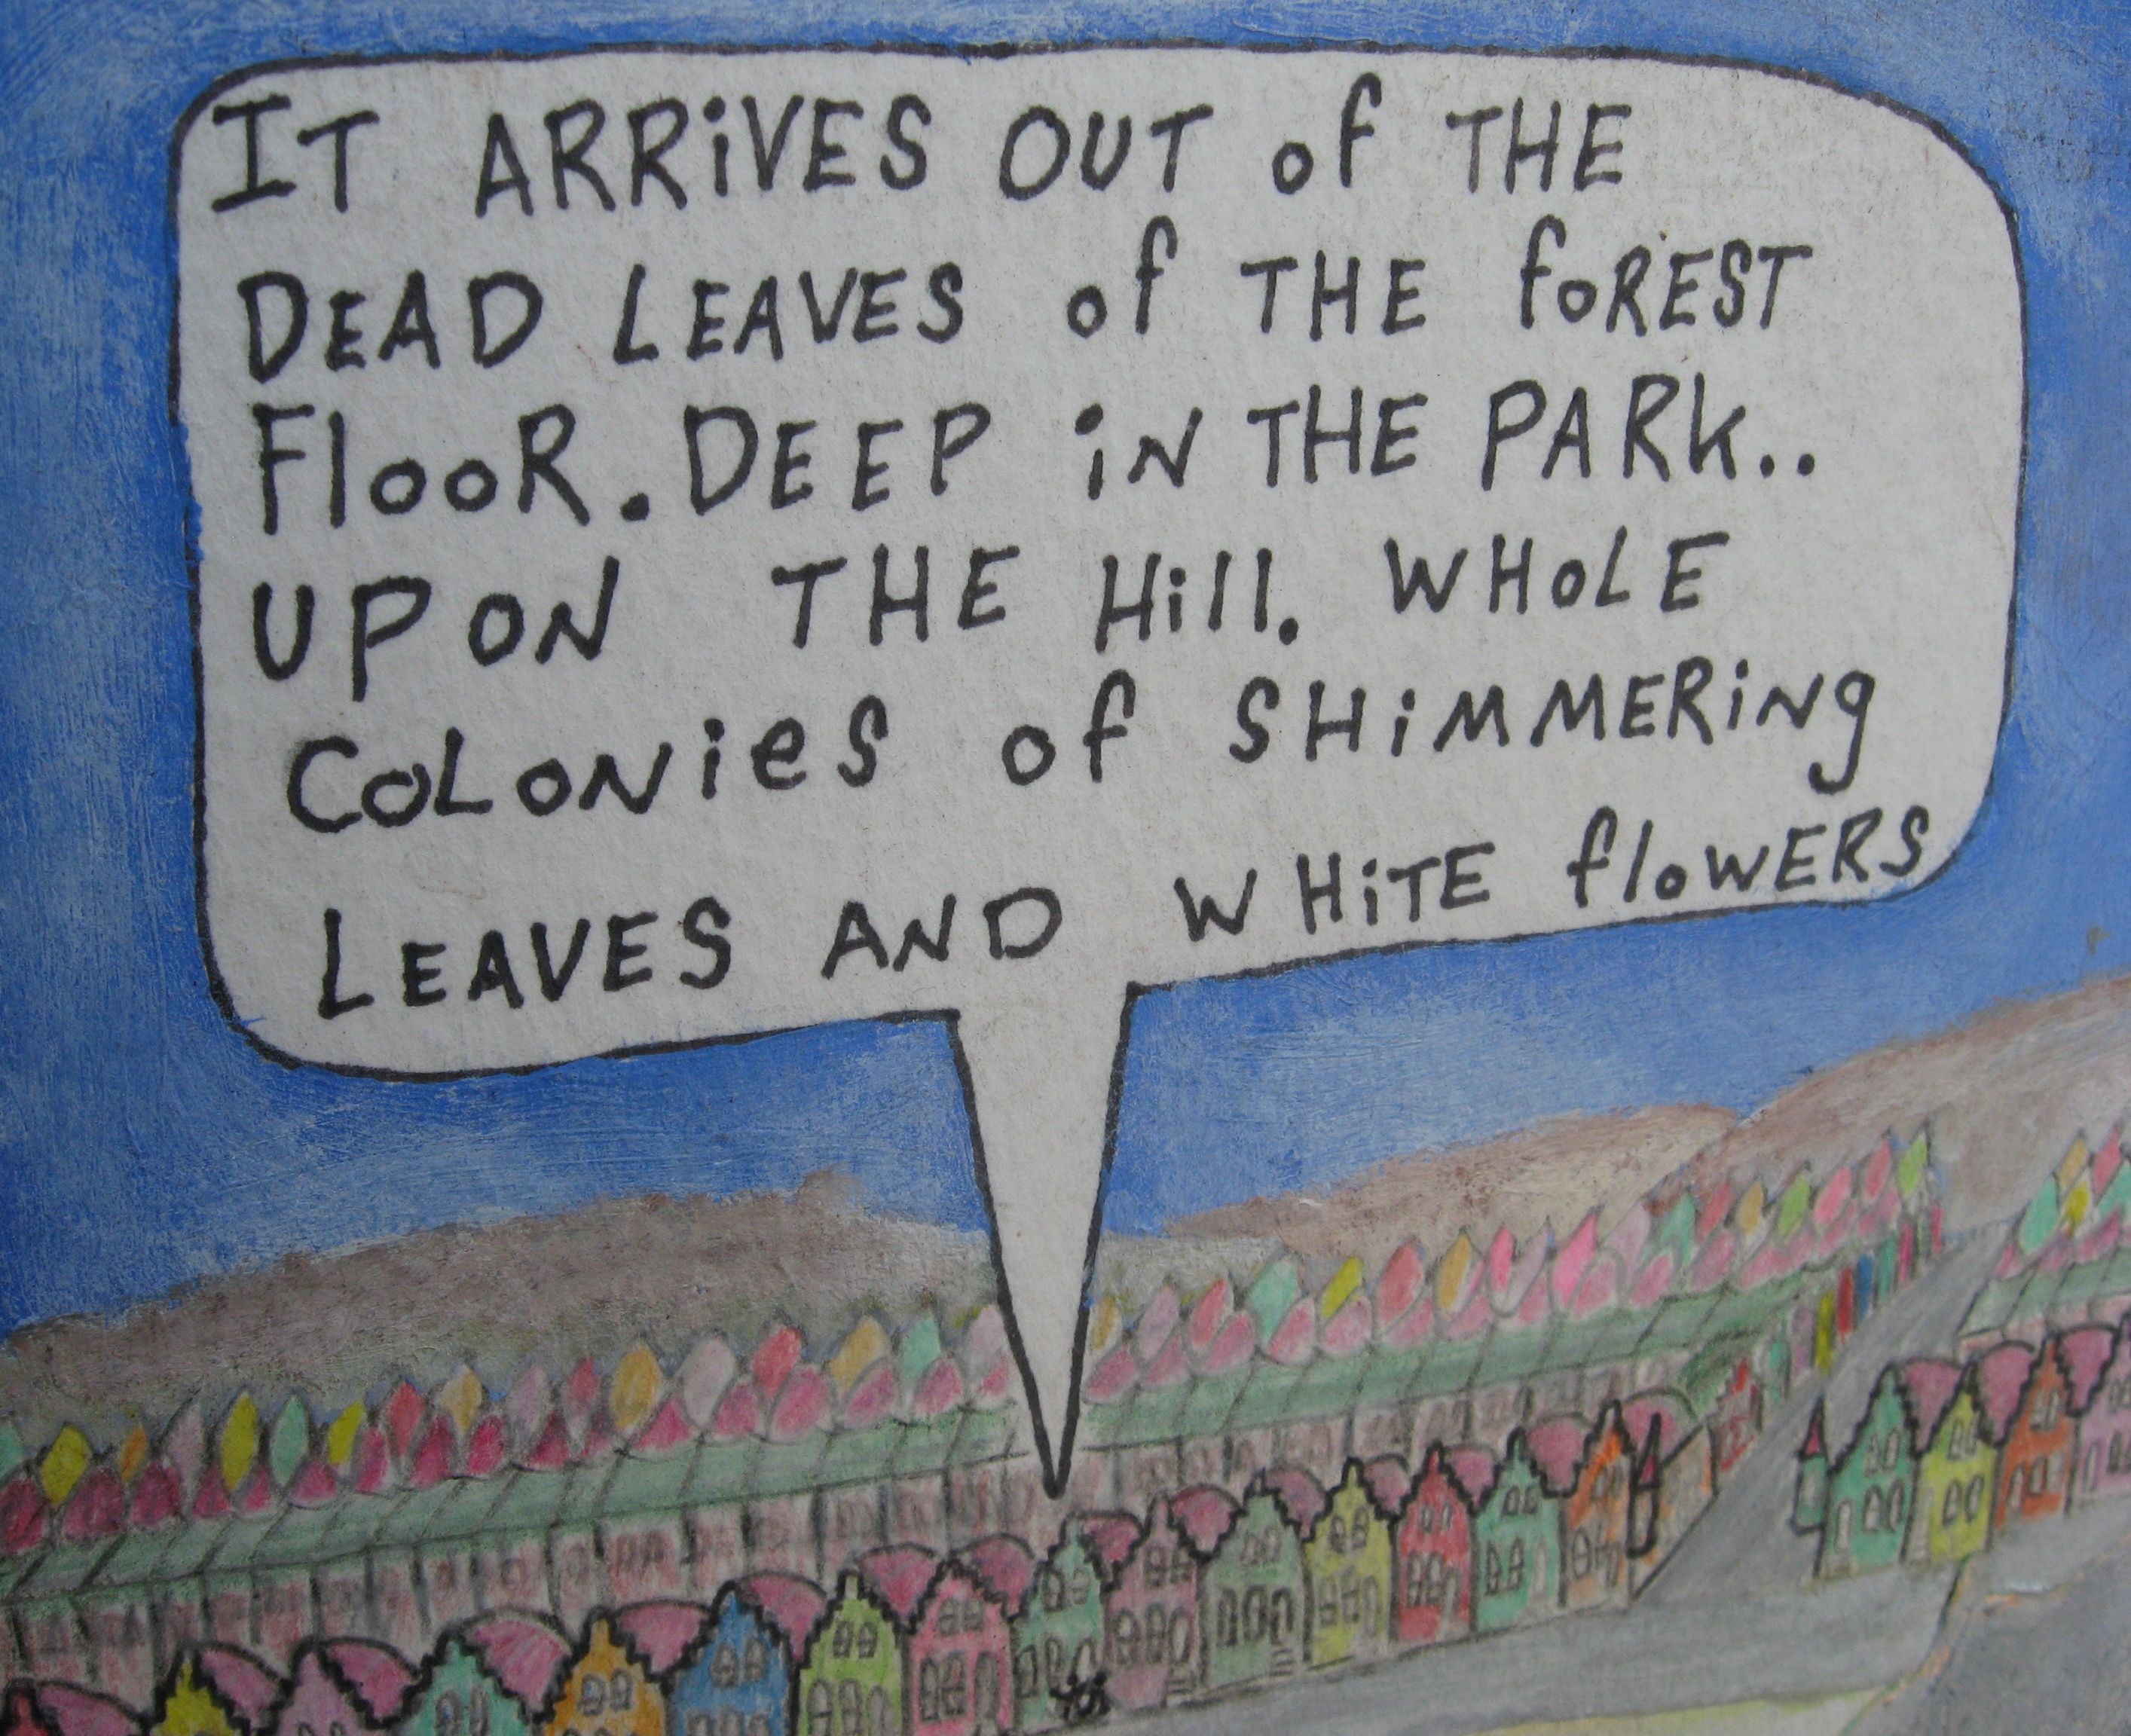 IT ARRiVES OUT of THE
DEAD LEAVES of THE foREST
FlooR. DEEP iN THE PARK..
UPON THE Hill. WHOLE
COLONieS of SHiMMERiNg
LEAVES AND WHiTE flowERS